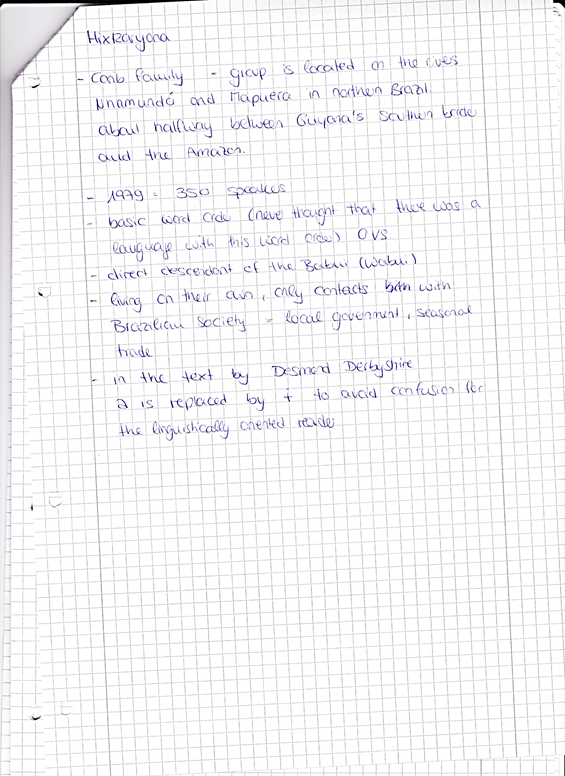 Hixkaryana
- Carib family - group is located on the rives
Nhamundó and Mapuera in northern Brazil.
about halfway between Guyana's southern bride
and the Amazon.
- 1979 = 350 speakes
- basic word order (never thought that there was a
language with this word order) OVS
- direct descendant of the Babui (Wabui)
- living on their own, only contacts both with
Brazilian society = local government, seasonal
trade
- in the text by Desmond Derbyshire
is replaced by ɨ to avoid confusion for
the linguistically oriented reader